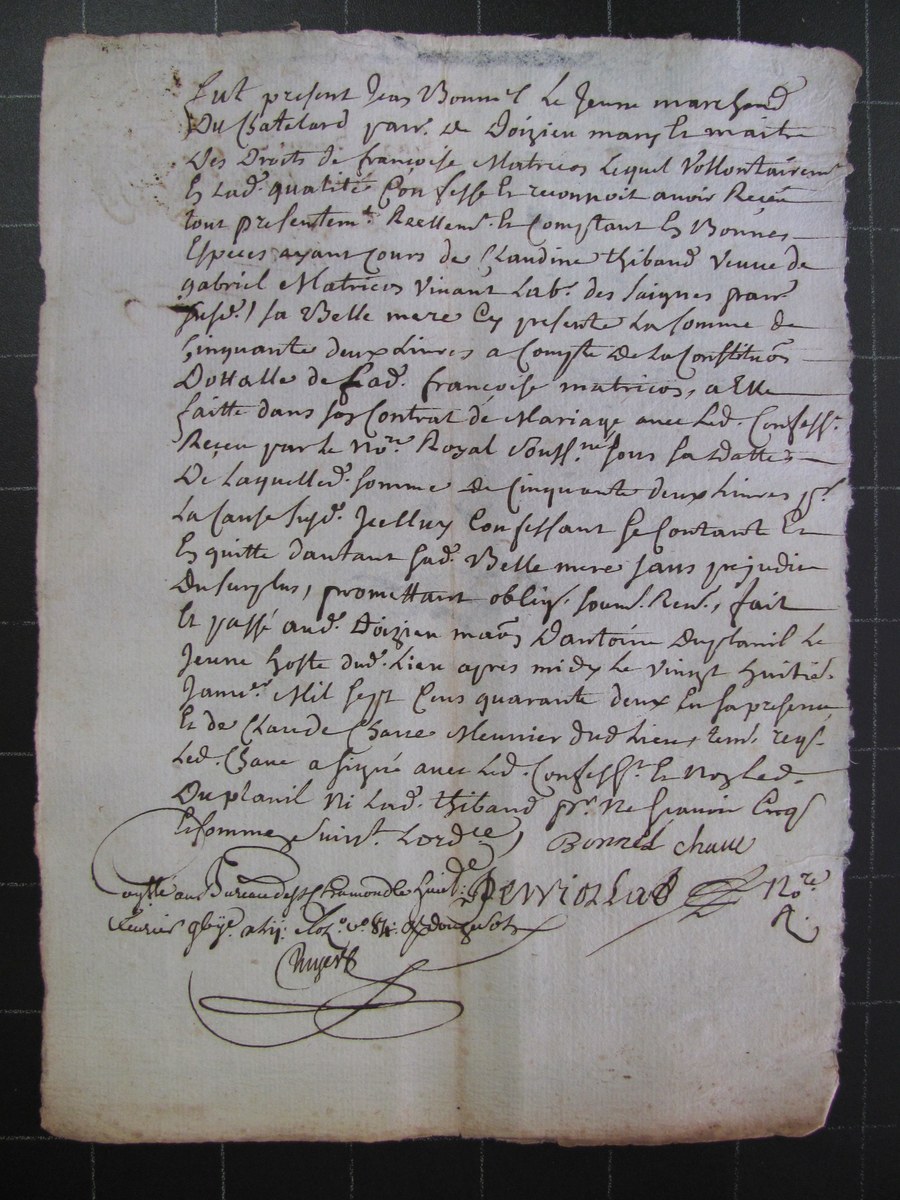 fut present Jean Bonnet Le Jeune marchand
Du Chatelard parr. de Doizieu mary Et maitre
Des Droits de françoise Matricon Lequel Vollontairemt
En lad. qualité Confesse Et reconnoit avoir Receu
tout presentemt. Reellemt. Et Comptant En Bonnes
Especes ayant Cours de Claudine thibaud Veuve de
gabriel Matricon Vivant Labr. des Saignes parr.
susd. sa Belle mere Cy presente La somme de
Cinquante deux Livres a Compte De La Constituôn
Dottalle de Lad. françoise matricon, a Elle
faitte dans son Contrat de Mariage avec Led. Confesst.
Receu par Le Nore. Royal Soussné. sous sa datte
De Laquelled. somme de Cinquante deux Livres pr.
La Cause susd. Jcelluy Confessant se Contant Et
En quitte dautant sad. Belle mere sans prejudice
Du surplus, promettant oblig. soum. Ren. fait
Et passé aud. Doizieu maôn Dantoine Duplanil Le
Jeune hoste dud. Lieu apres midy Le Vingt huitie.
Janvier Mil sept Cens quarante deux En sa presence
Et de Claude Chave Meunier dud Lieu, tem. reqs.
Led. Chave a signé avec Led. Confesst. Et Non Led.
Duplanil Ni Lad. thibaud pr. Ne sçavoir Enqs
Et somme suivt. Lordce. Bonnet chave
au Bureau de St Chamond Le huit
Nore.
R.
fevrier douze sols